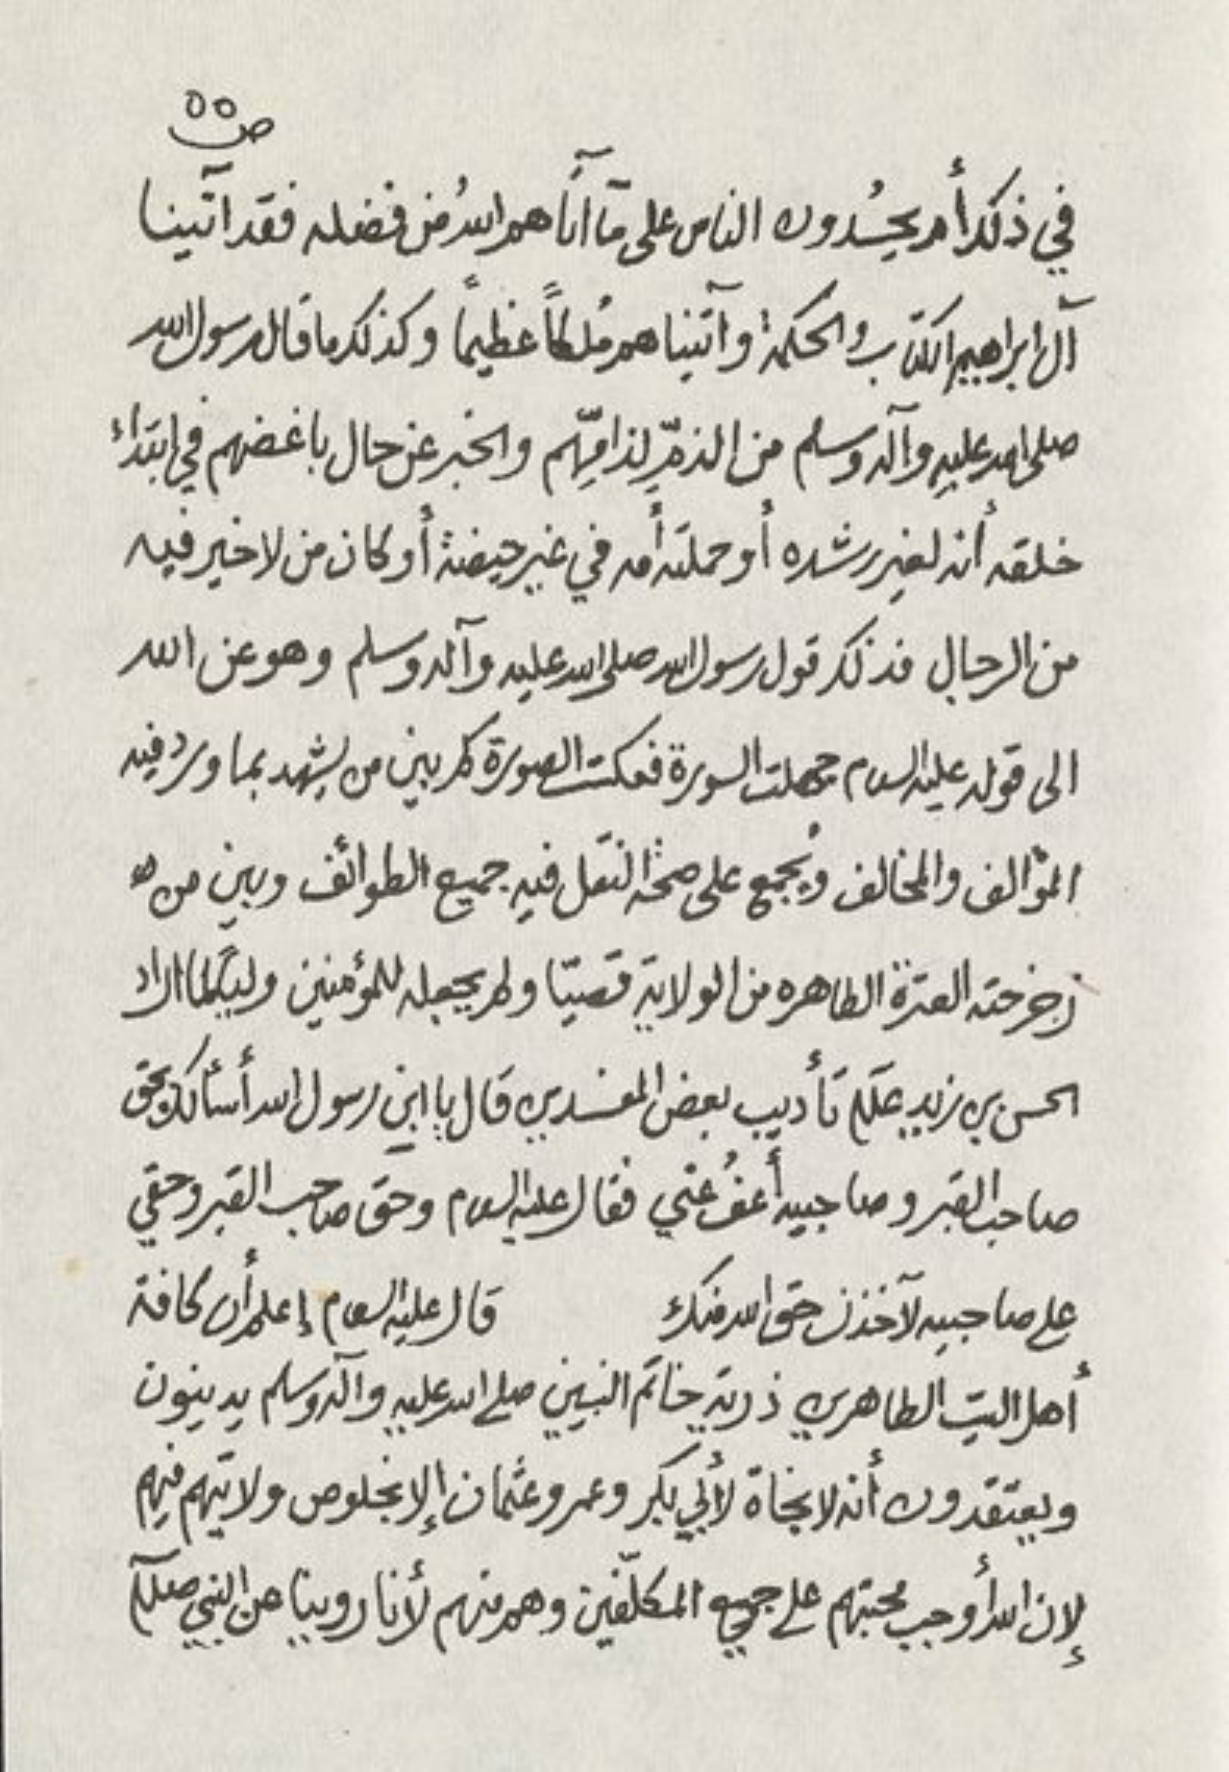 ص ٥٥
في ذلك أم يحسُدون الناس على مآ آتاهم اللهُ من فضله فقد آتينا
آل ابراهيم الكتاب والحكمة وآتيناهم مُلكاً عظيماً وكذلك ما قال رسول الله
صلى الله عليه وآله وسلم من الذمّ لذامّيهم والخبر عن حال باغضهم في ابتداء
خلقه أنه لغير رشده أو حملته أمه في غير حيضة أو كان من لا خير فيه
من الرجال فذلك قول رسول الله صلى الله عليه وآله وسلم وهو عن الله
الى قوله عليه السلام جهلت السورة فعكست الصورة كم بين من يشهد بما ورد فيه
المؤالف والمخالف ويُجمع على صحة النقل فيه جميع الطوائف وبين من
زخرحته العترة الطاهره من الولاية قصيّا ولم يجعله للمؤمنين وليّاً لما اراد
الحسن بن زيد تأديب بعض المفسدين قال يا ابن رسول الله أسألك بحق
صاحب القبر وصاحبيه أعفُ عنّي فقال عليه السلام وحق صاحب القبر وحقي
على صاحبيه لآخذن حق الله منك قال عليه السلام إعلم أن كافة
أهل البيت الطاهرين ذرية خاتم النبيين صلى الله عليه وآله وسلم يدينون
ويعتقدون أنه لا نجاة لأبي بكر وعمر وعثمان إلا بخلوص ولايتهم فيهم
لإن الله أوجب محبتهم على جميع المكلّفين وهم منهم لأنا روينا عن النبي صللم